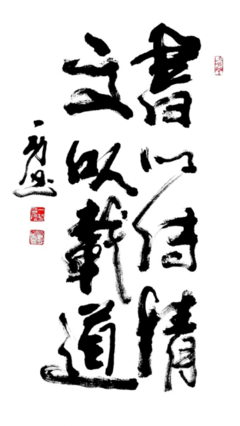 書以传情
文以載道